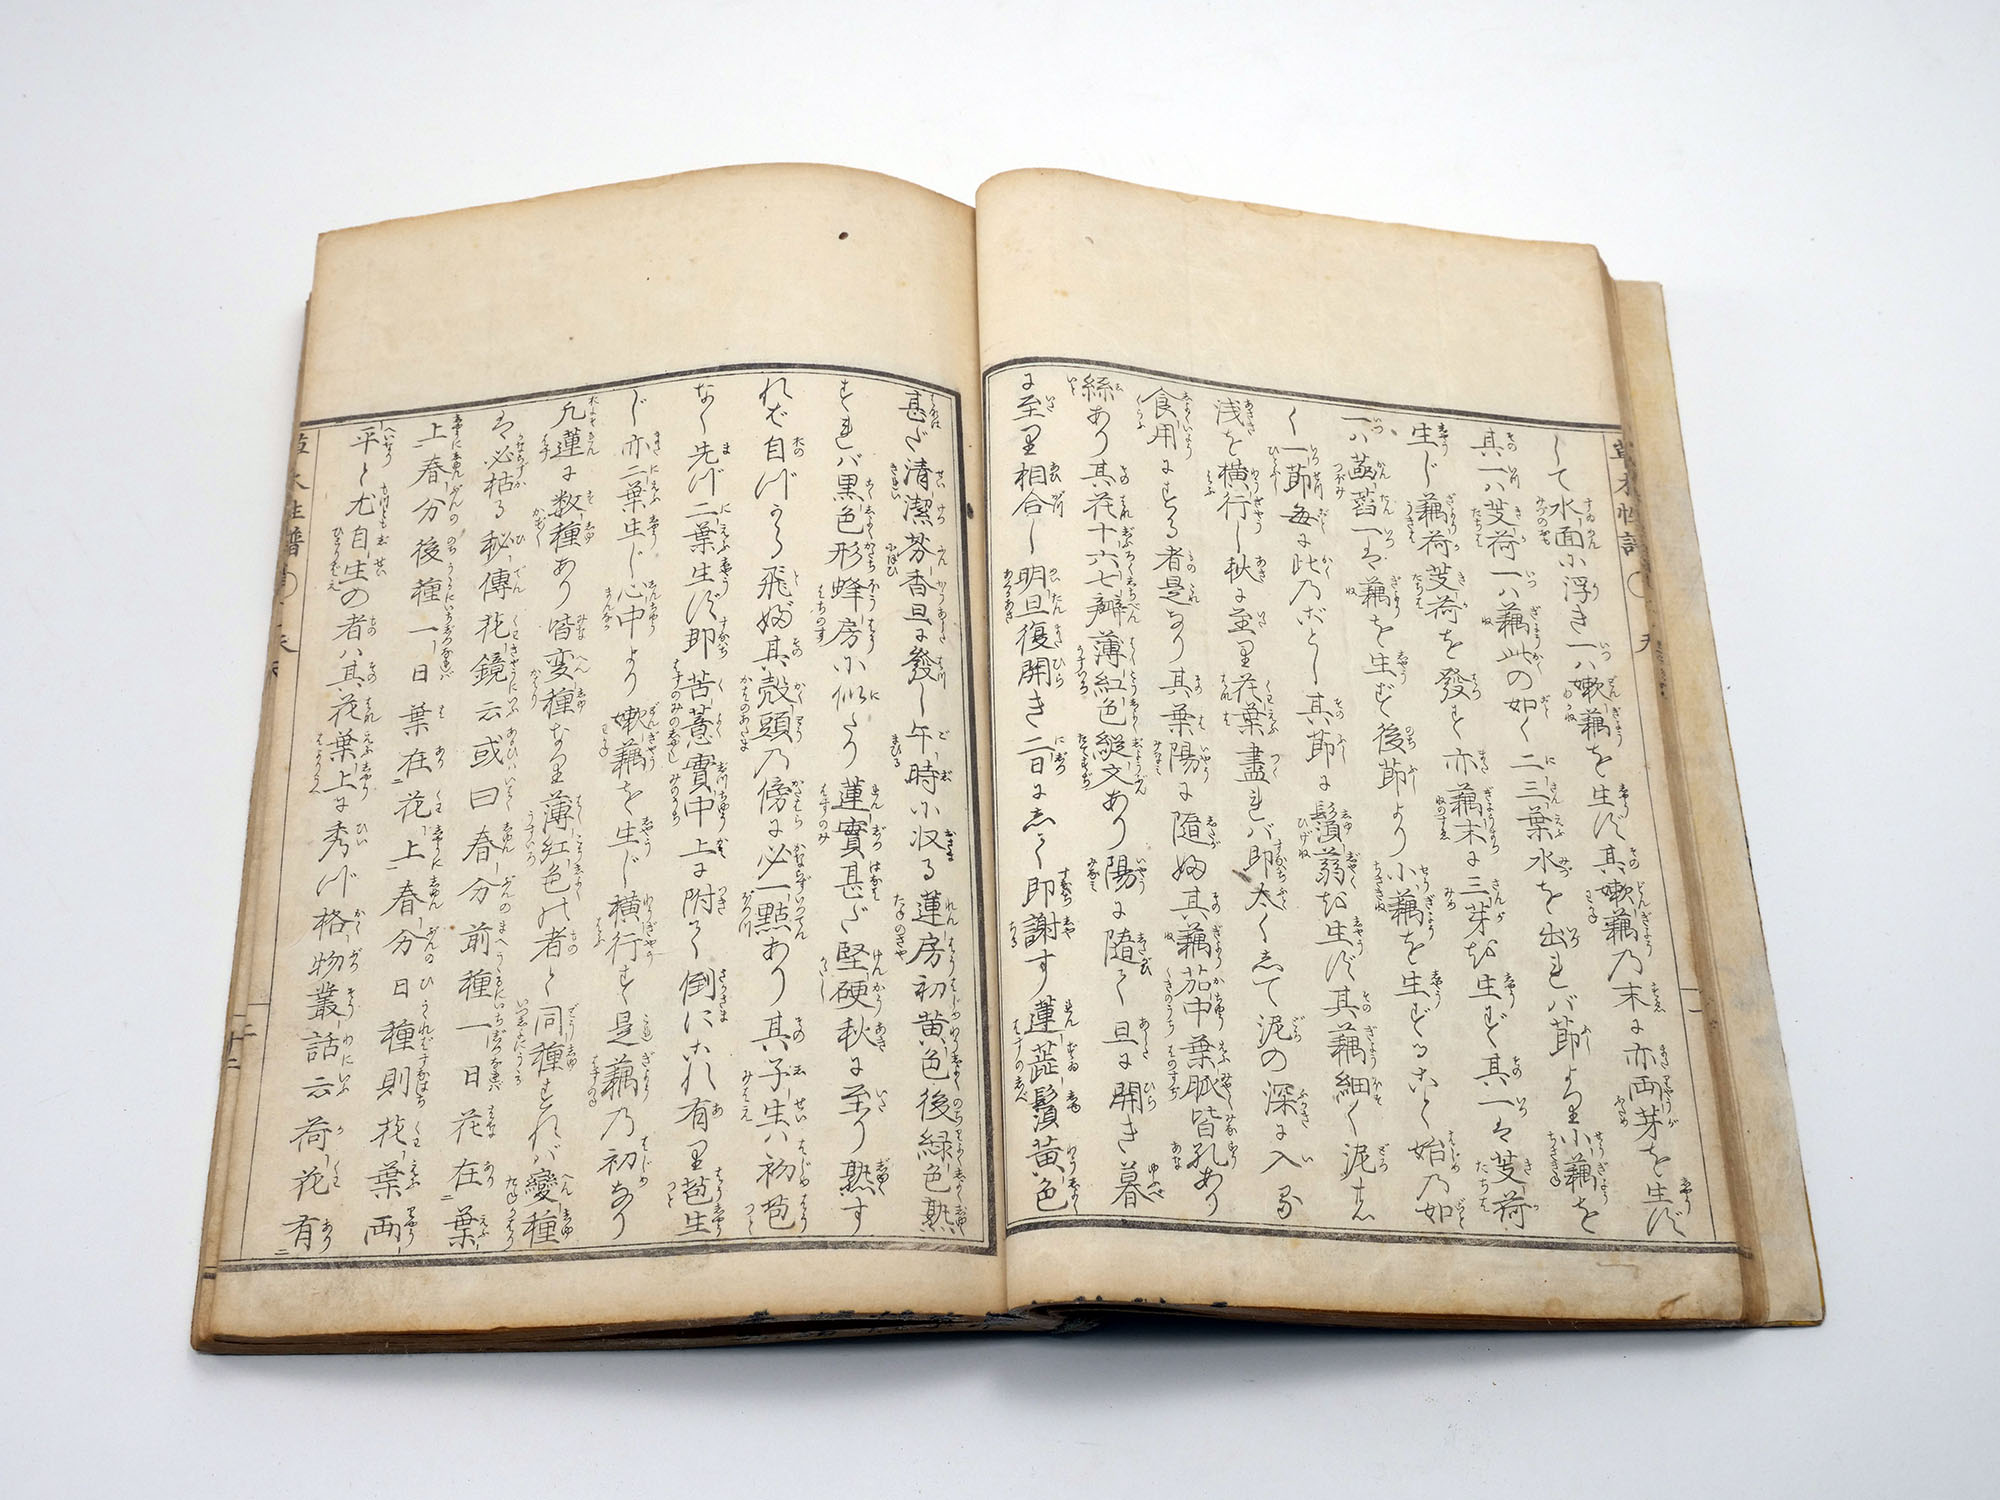 して水面に浮き一ハ嫰藕を生ず其嫰藕乃末に亦両芽を生ず
其一ハ芰荷一ハ藕此の如く二三葉水を出れバ節より小藕を
生じ藕荷芰荷を發す亦藕末に三芽を生ず其一ハ芰荷
一ハ菡萏一ハ藕を生ず後節より小藕を生ずること始乃如
く一節毎に此乃ごとし其節に鬚蒻を生ず其藕細く泥
浅を横行し秋に至里花葉盡れバ即太くして泥の深に入る
食用にする者是なり其葉陽に随ひ其藕茄中葉脈皆孔あり
絲あり其花十六七瓣薄紅色縦文あり陽に随て旦に開き暮
に至里相合し明旦復開き二日にして即謝す蓮蕋鬚黄色
甚ダ清潔芬香旦に發し午時に収る蓮房初黄色後緑色熟
すれバ黒色形蜂房に似たり蓮實甚ダ堅硬秋に至り熟す
れば自づから飛ひ其殻頭乃傍に必一點あり其子生ハ初苞
なく先づ二葉生ず即苦薏實中上に附て倒にこれ有里苞生
じ亦二葉生じ心中より嫰藕を生じ横行す是藕乃初なり
凡蓮に数種あり皆変種なり薄紅色の者と同種すれバ變種
ハ必枯る秘傳花鏡云或曰春分前種一日花在葉
上春分後種一日葉在花上春分日種則花葉両
平と尤自生の者ハ其花葉上に秀づ格物叢話云荷花有